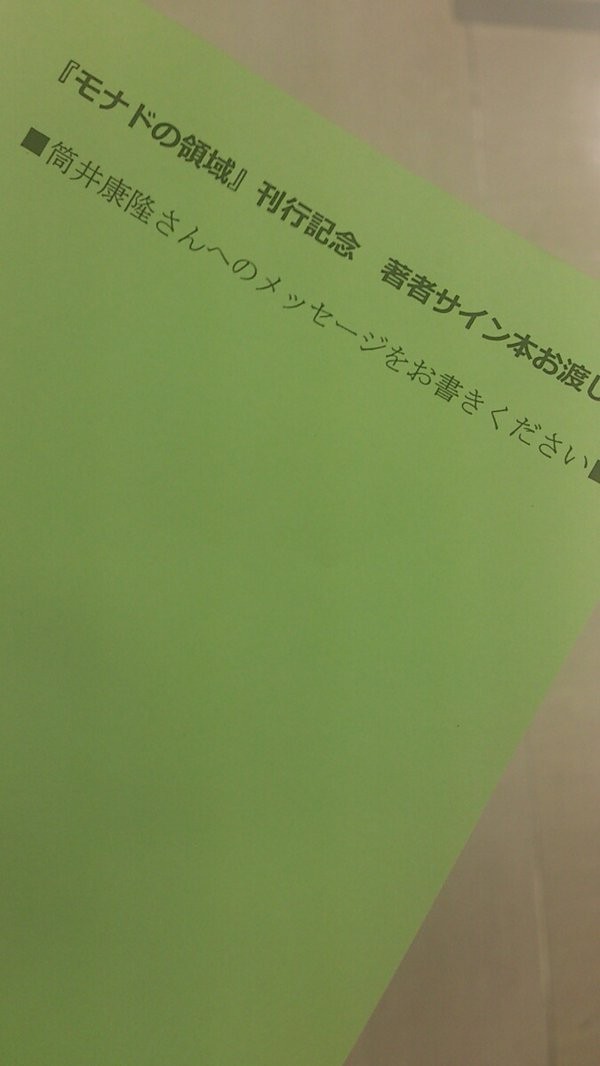 『モナドの領域』刊行記念　著者サイン本お渡し
■筒井康隆さんへのメッセージをお書きください■